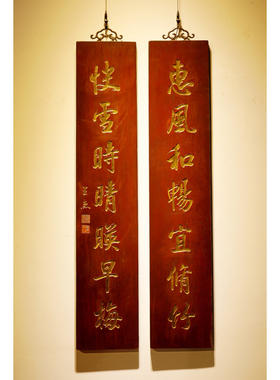 惠風和暢宜脩竹
快雪時晴暎早梅